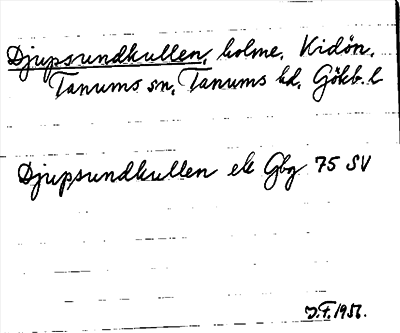 Djupsundkullen, holme, Kidön,
Tanums sn, Tanums hd, Götkb. l
Djupsundkullen ek Gbg 75 SV
J.F. 1956.